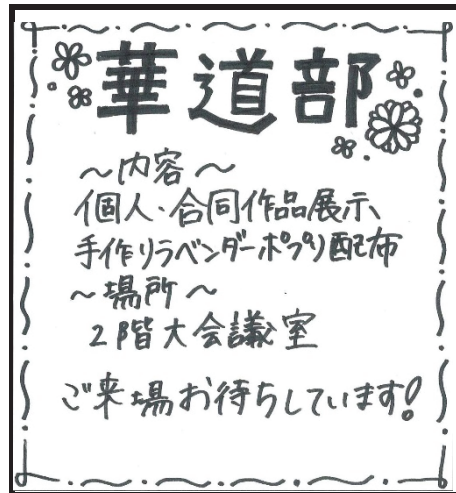 華道部
～内容～
個人・合同作品展示、
手作りラベンダーポプリ配布
～場所～
2階大会議室
ご来場お待ちしています!